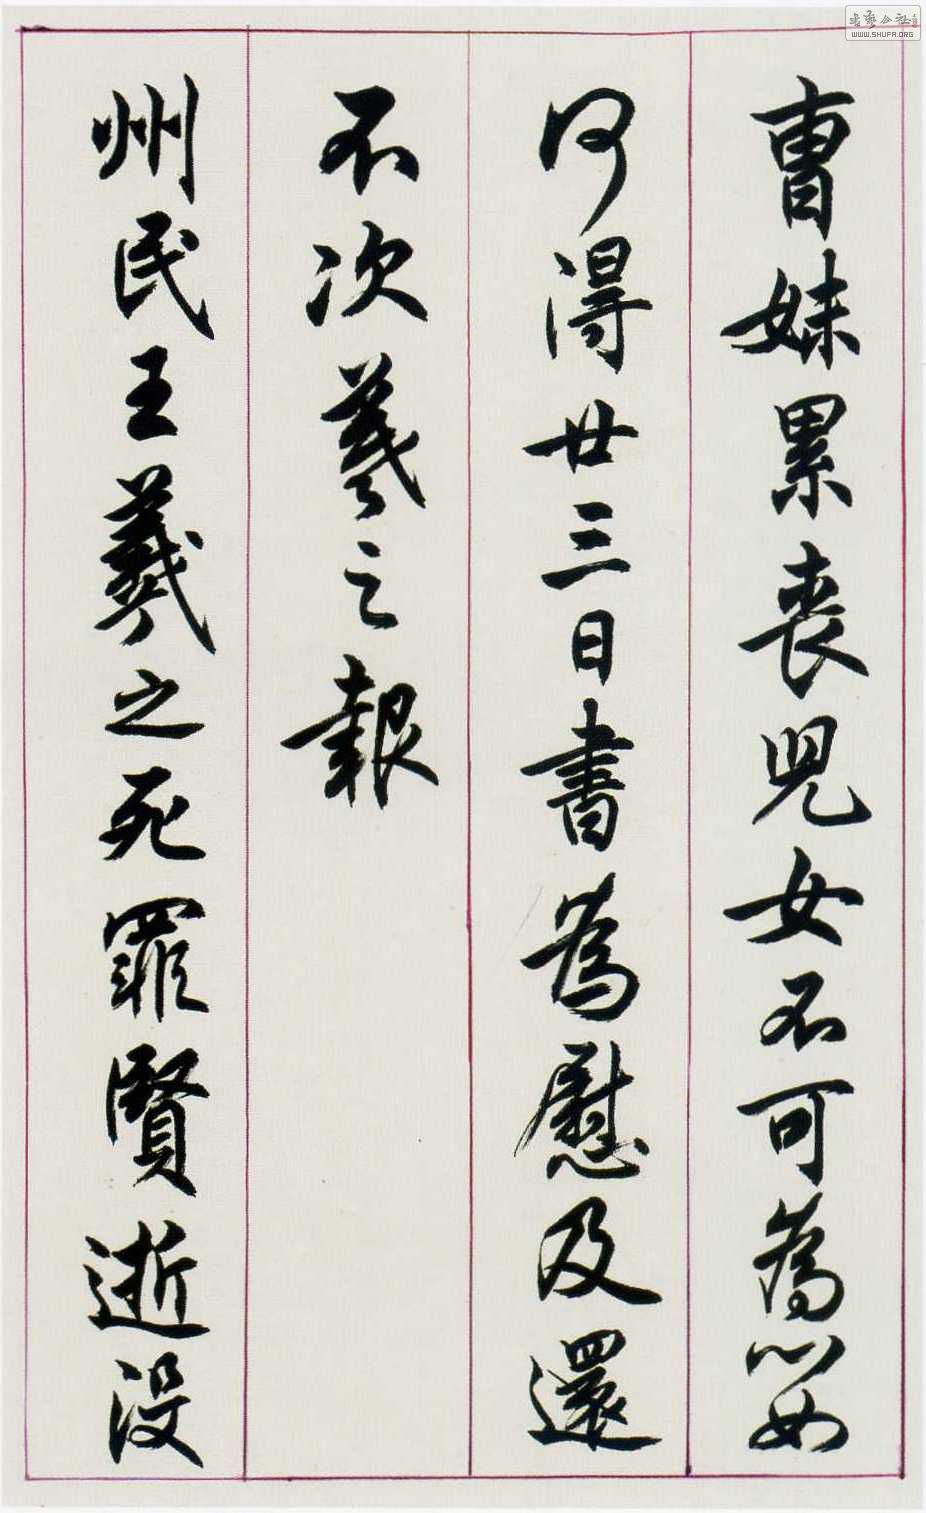 曹妹累喪兒女不可為心如
何得廿三日書為慰及還
不次羲之報
州民王羲之死罪賢逝没
書藝公社
WWW.SHUFA.ORG